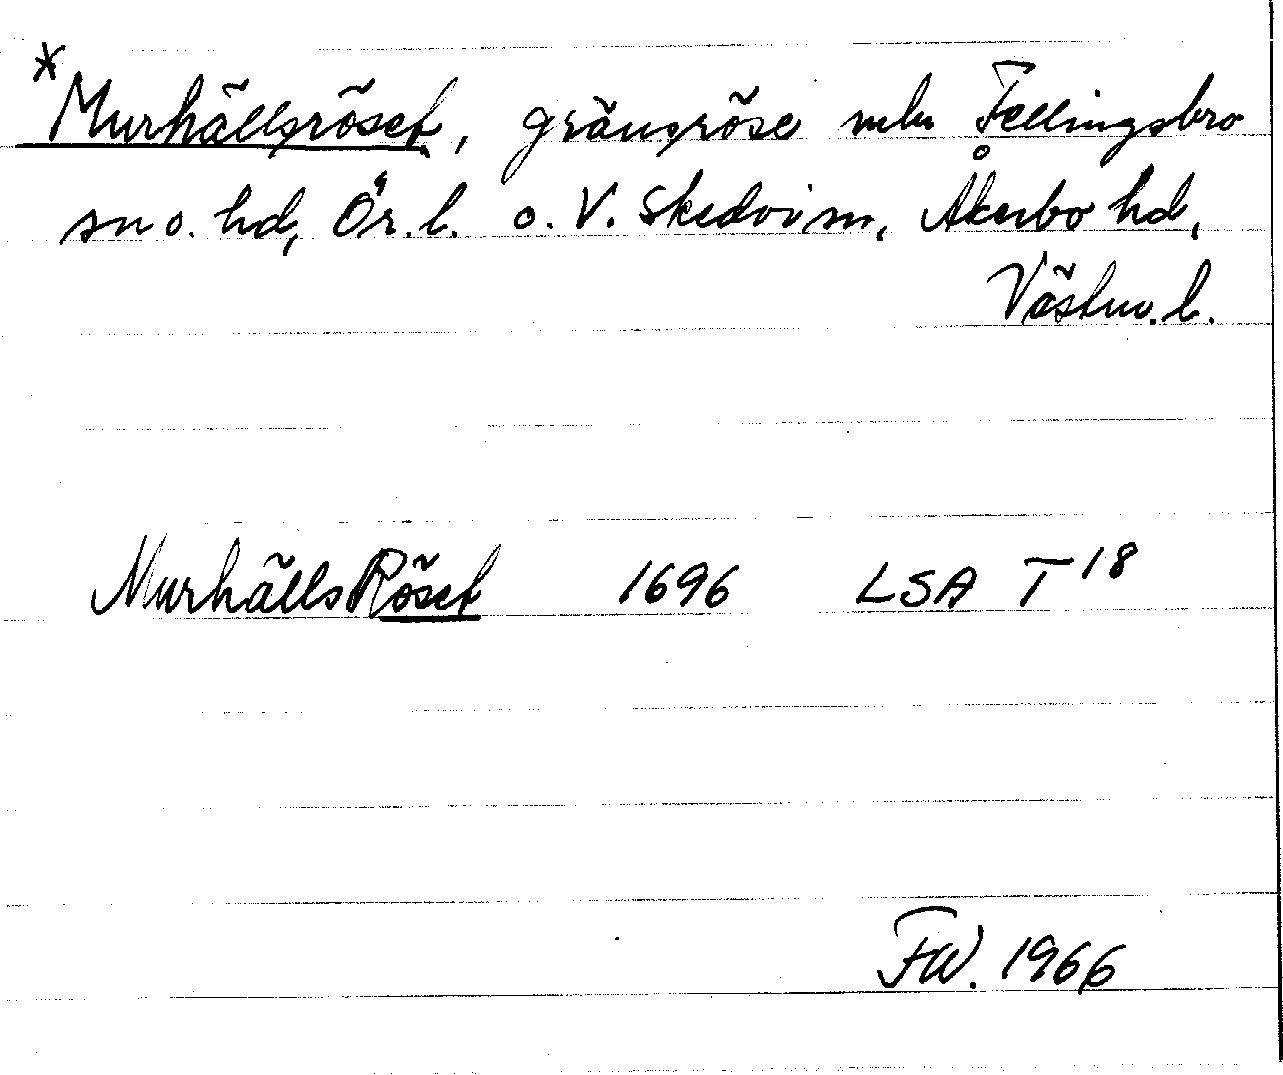 *Murhällsröset, gränsröse mln Fellingsbro
sn o. hd, Ör. l. o. V. Skedvi sn, Åkerbo hd,
Västm. l.
MurhällsRöset 1696 LSA T 18
FW. 1966